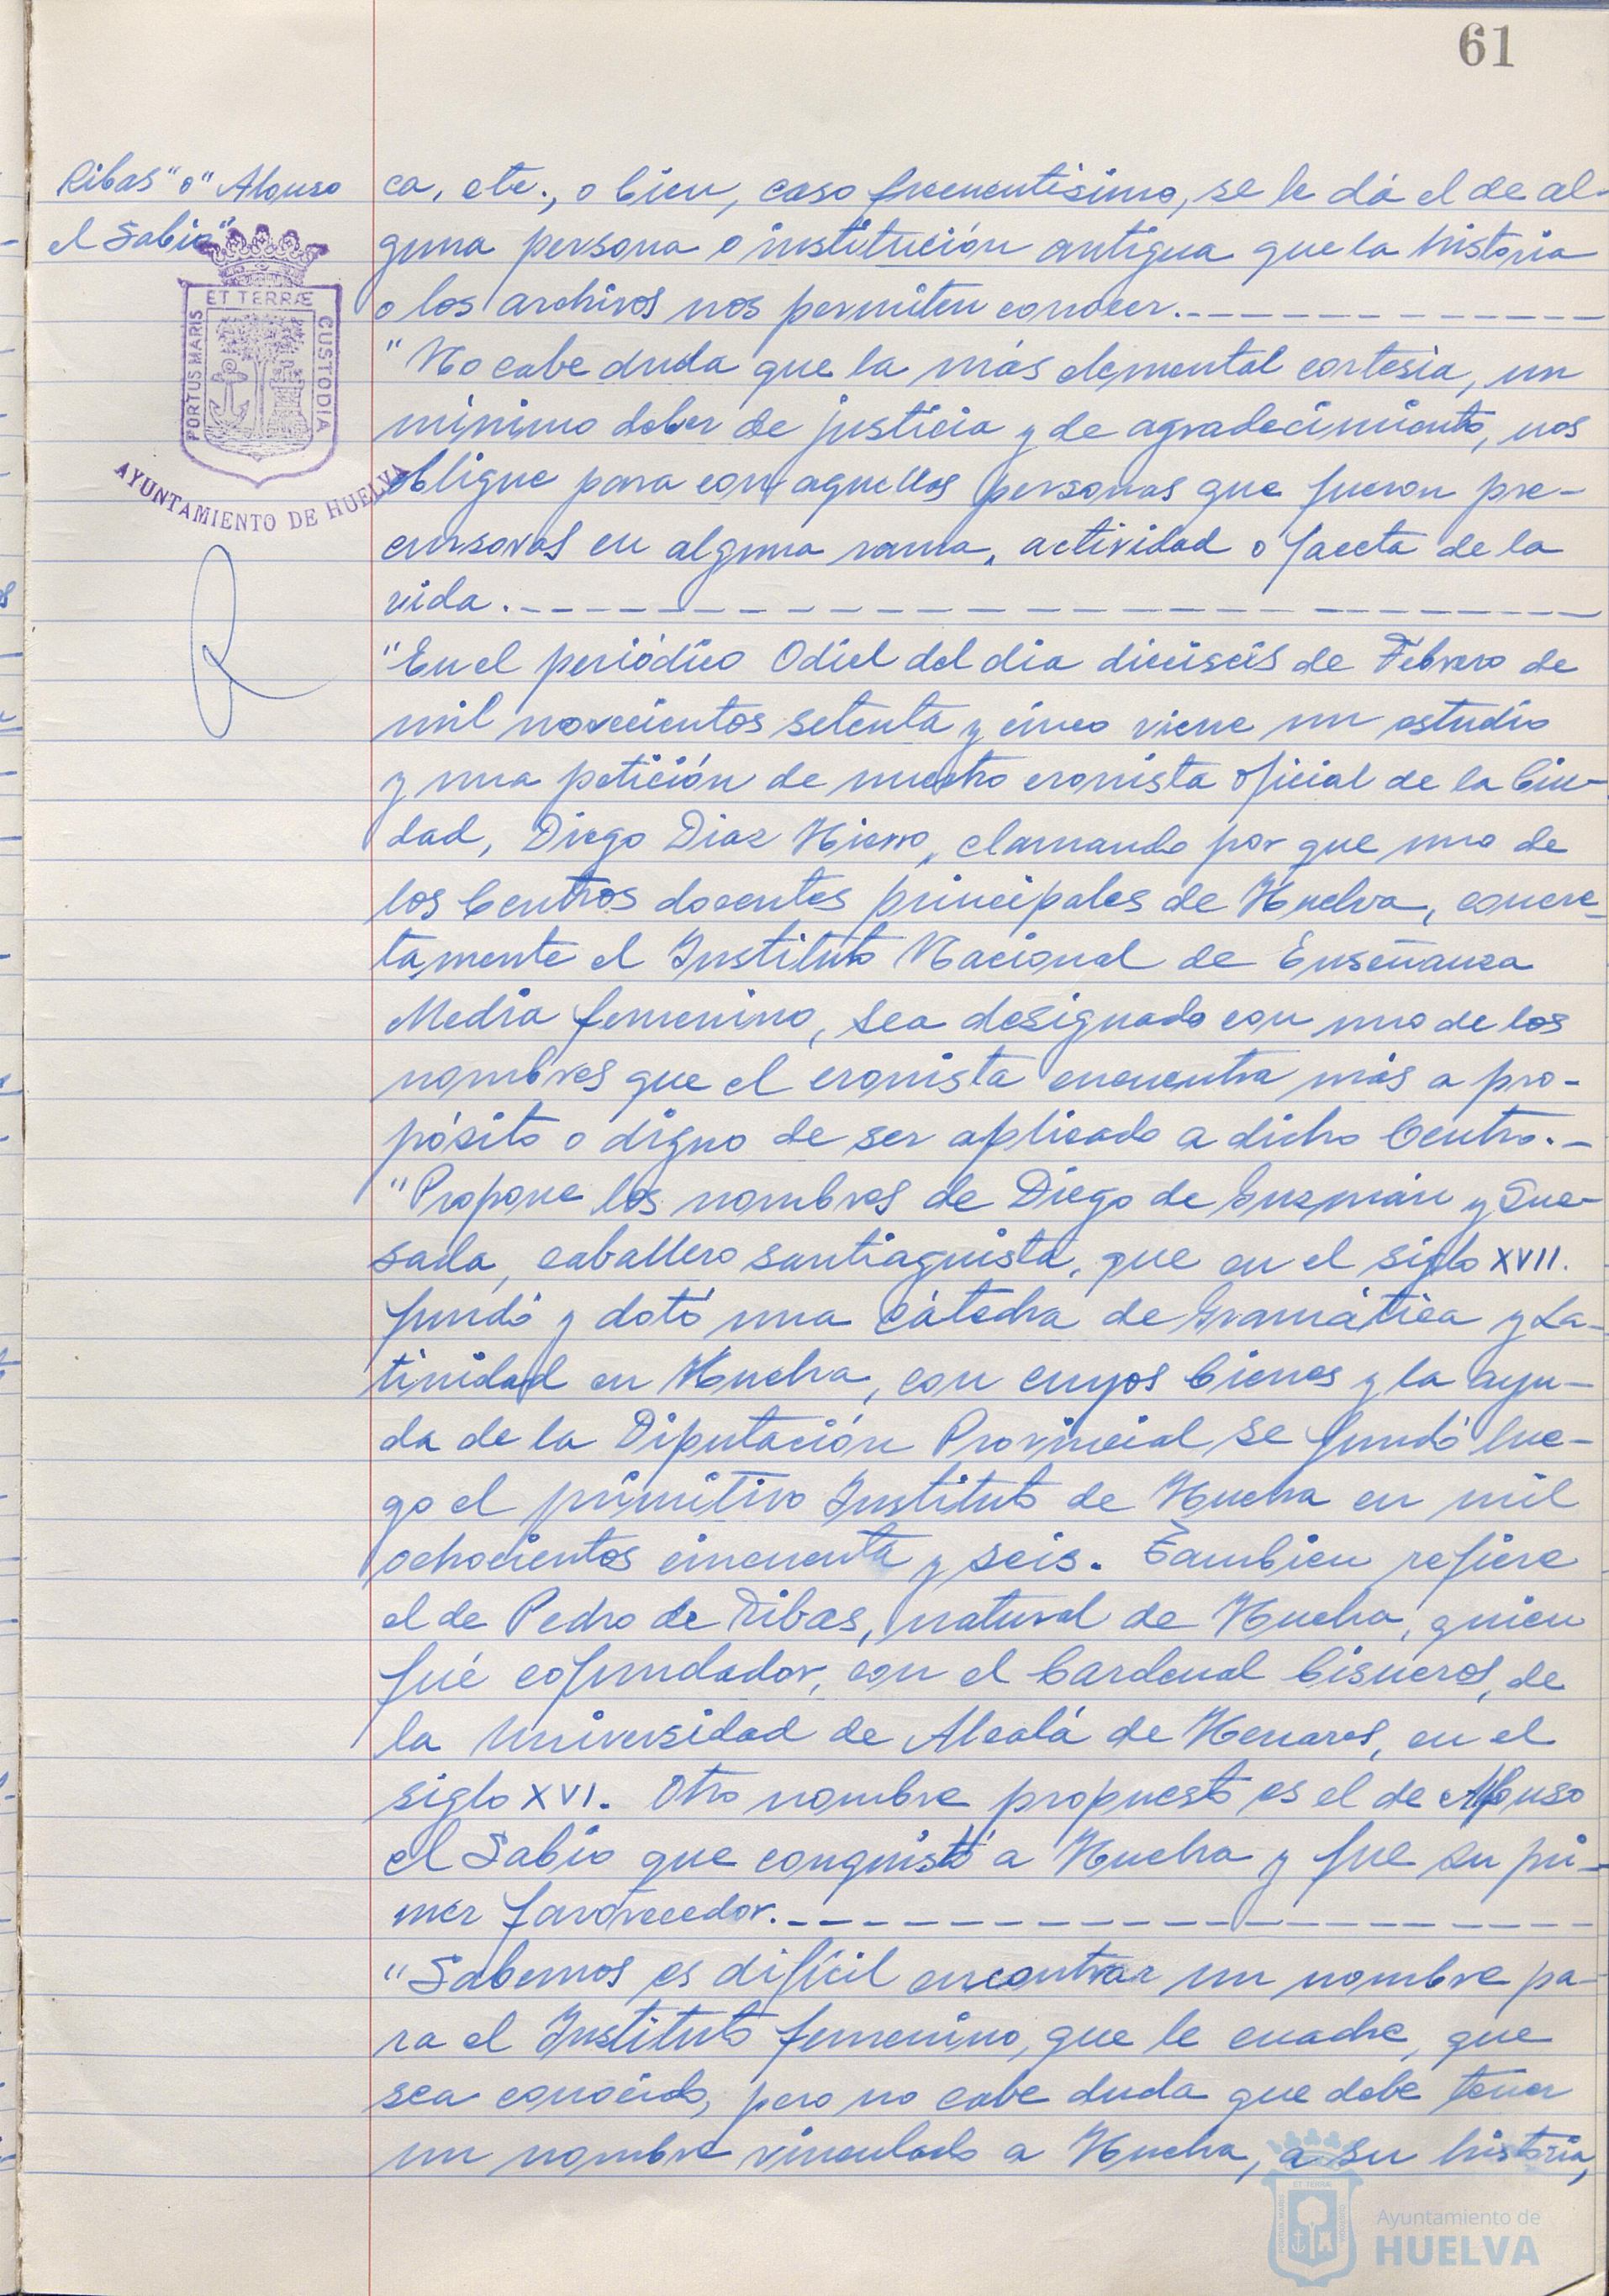 61
Ribas" o "Alonso
el Sabio"
ET TERRÆ
PORTUS MARIS
CUSTODIA
AYUNTAMIENTO DE HUELVA
ca, etc., o bien, caso frecuentísimo, se le dá el de al-
guna persona o institución antigua que la historia
o los archivos nos permiten conocer.
"No cabe duda que la más elemental cortesía, un
mínimo deber de justicia y de agradecimiento, nos
obligue para con aquellas personas que fueron pre-
cursoras en alguna rama, actividad o faceta de la
vida.
"En el periódico Odiel del día dieciséis de Febrero de
mil novecientos setenta y cinco viene un estudio
y una petición de nuestro cronista oficial de la Ciu-
dad, Diego Díaz Hierro, clamando por que uno de
los Centros docentes principales de Huelva, concre-
tamente el Instituto Nacional de Enseñanza
Media femenino, sea designado con uno de los
nombres que el cronista encuentra más a pro-
pósito o digno de ser aplicado a dicho Centro.-
"Propone los nombres de Diego de Guzmán y Que-
sada, caballero santiaguista, que en el siglo XVII.
fundó y dotó una cátedra de Gramática y La-
tinidad en Huelva, con cuyos bienes y la ayu-
da de la Diputación Provincial se fundó lue-
go el primitivo Instituto de Huelva en mil
ochocientos cincuenta y seis. Tambien refiere
el de Pedro de Ribas, natural de Huelva, quien
fué cofundador, con el Cardenal Cisneros, de
la Universidad de Alcalá de Henares, en el
siglo XVI. Otro nombre propuesto es el de Alfonso
el Sabio que conquistó a Huelva y fue su pri-
mer favorecedor.
"Sabemos es difícil encontrar un nombre pa-
ra el Instituto femenino, que le cuadre, que
sea conocido, pero no cabe duda que debe tener
un nombre vinculado a Huelva, a su historia,
Ayuntamiento de
HUELVA